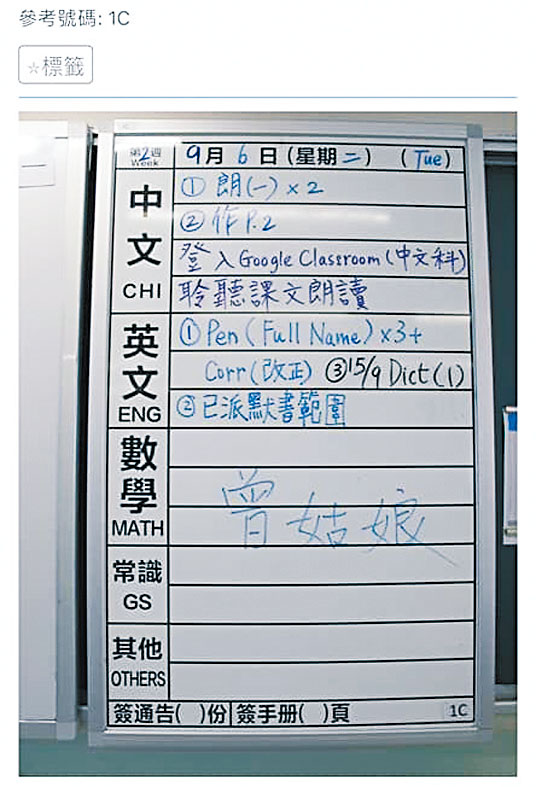 參考號碼: 1C
☆標籤
第2週 Week 9月6日(星期二) (Tue)
中文 CHI
① 朗(一) x 2
② 作 P.2
登入 Google Classroom (中文科)
聆聽課文朗讀
英文 ENG
① Pen (Full Name) x3+
Corr (改正) ③ 15/9 Dict (1)
② 已派默書範圍
數學 MATH
曾姑娘
常識 GS
其他 OTHERS
簽通告( )份 簽手册( )頁 1C